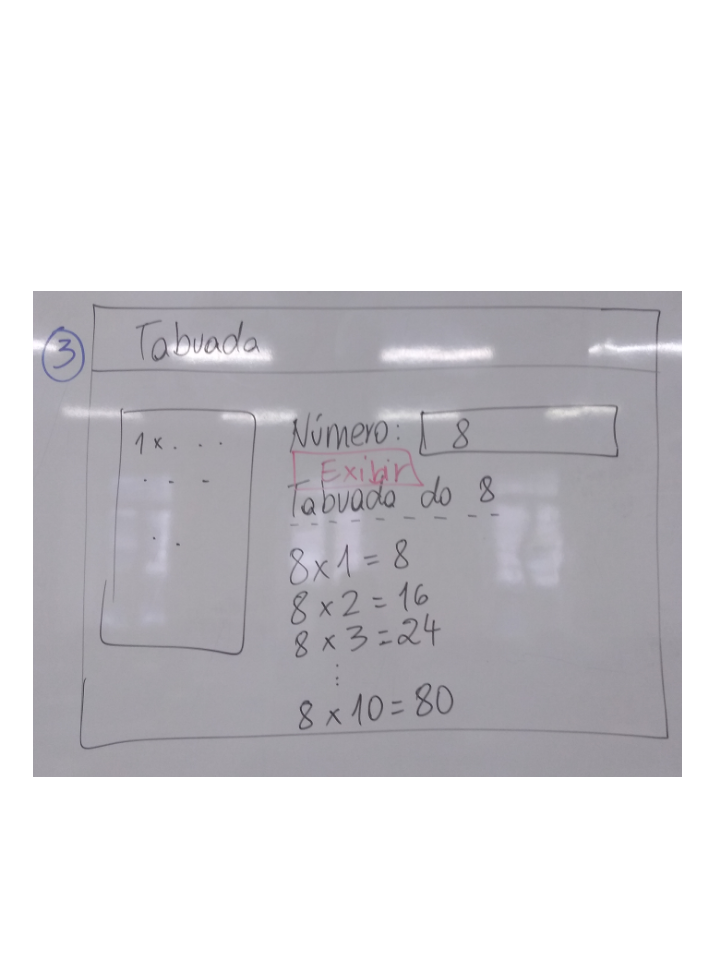 3
Tabuada
1 x . . .
. . -
. .
Número: 8
Exibir
Tabuada do 8
8 x 1 = 8
8 x 2 = 16
8 x 3 = 24
⋮
8 x 10 = 80